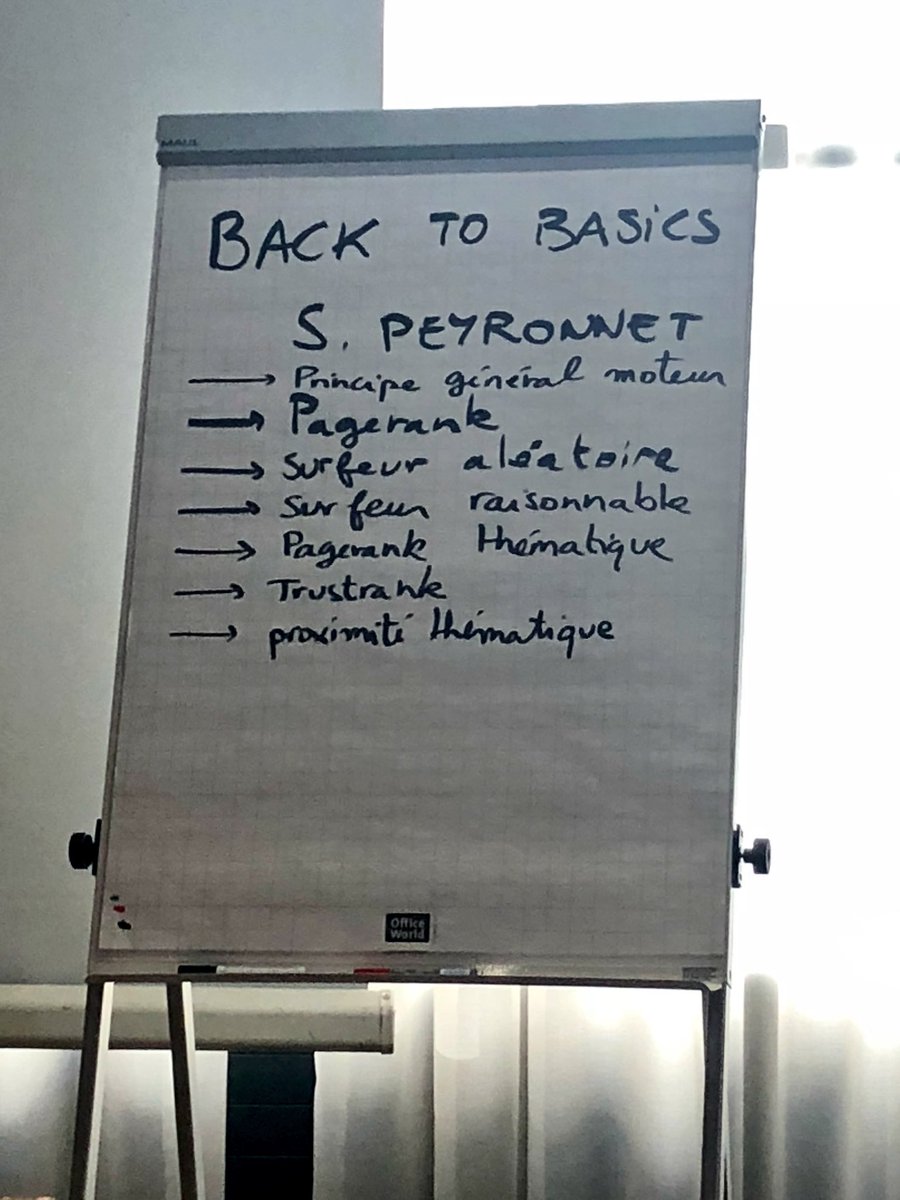 MAUL
BACK TO BASiCS
S. PEYRONNET
→ Principe général moteur
→ Pagerank
→ Surfeur aléatoire
→ Surfeur raisonnable
→ Pagerank thématique
→ Trustrank
→ proximité thématique
Office
World